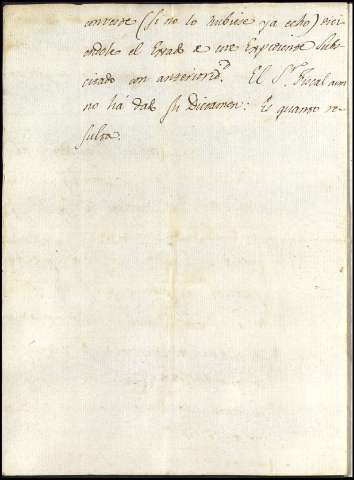 converse (si no lo hubiese ya echo) dici
endole el Estado de este Expediente subs
citado con anteriorid.d El S.r Fiscal aun
no há dado su Dictamen: Es quanto re
sulta.